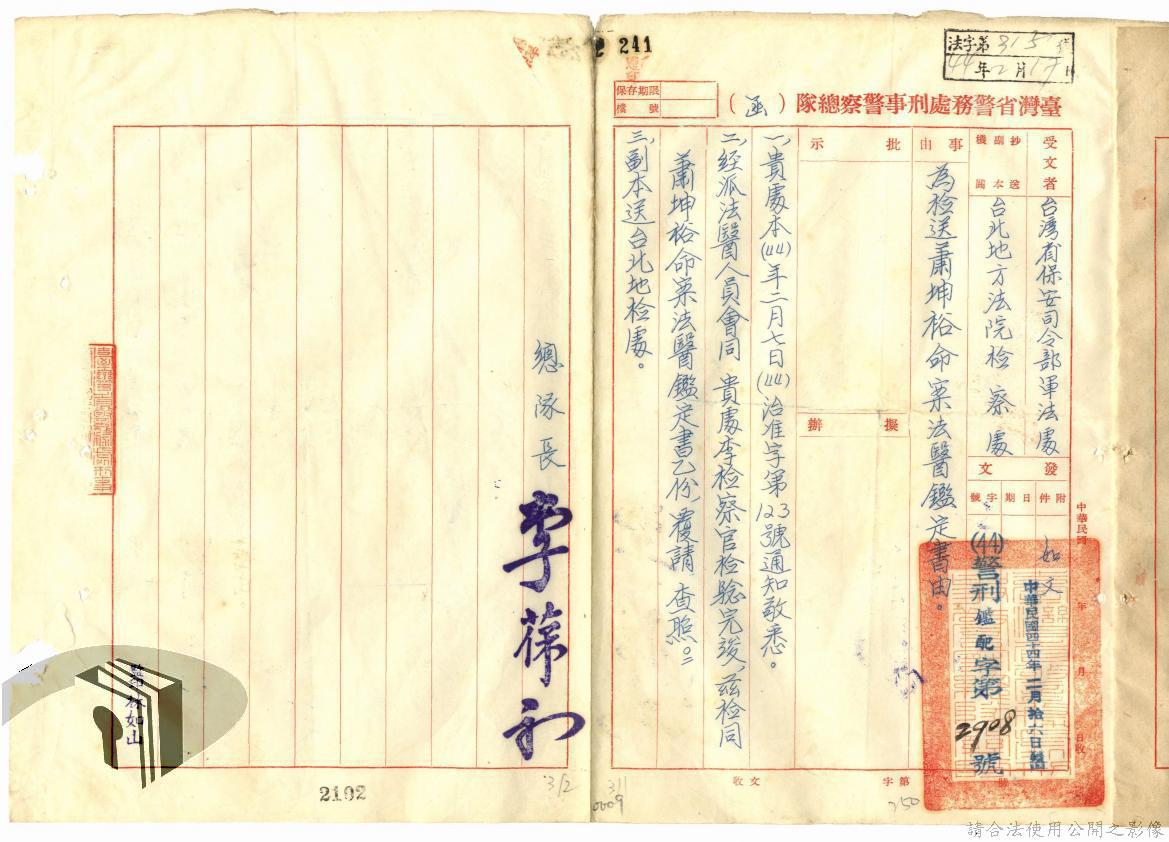 241
法字第315號
44年2月17日
保存期限
檔號
臺灣省警務處刑事警察總隊(函)
受文者
台灣省保安司令部軍法處
抄副機
送本關
台北地方法院檢察處
發文
附件
日期
字號
如文
中華民國四十四年二月拾六日
(44)警刑鑑字第2908號
事由
為檢送蕭坤裕命案法醫鑑定書由。
批示
擬辦
一、貴處本(44)年二月七日(44)治准字第123號通知敬悉。
二、經派法醫人員會同 貴處李檢察官檢驗完竣、茲檢同
蕭坤裕命案法醫鑑定書乙份、覆請 查照。
三、副本送台北地檢處。
中華民國 年 月 日收
收文 字第 號
總隊長
李葆初
林如山
2192
312
311
0009
350
請合法使用公開之影像